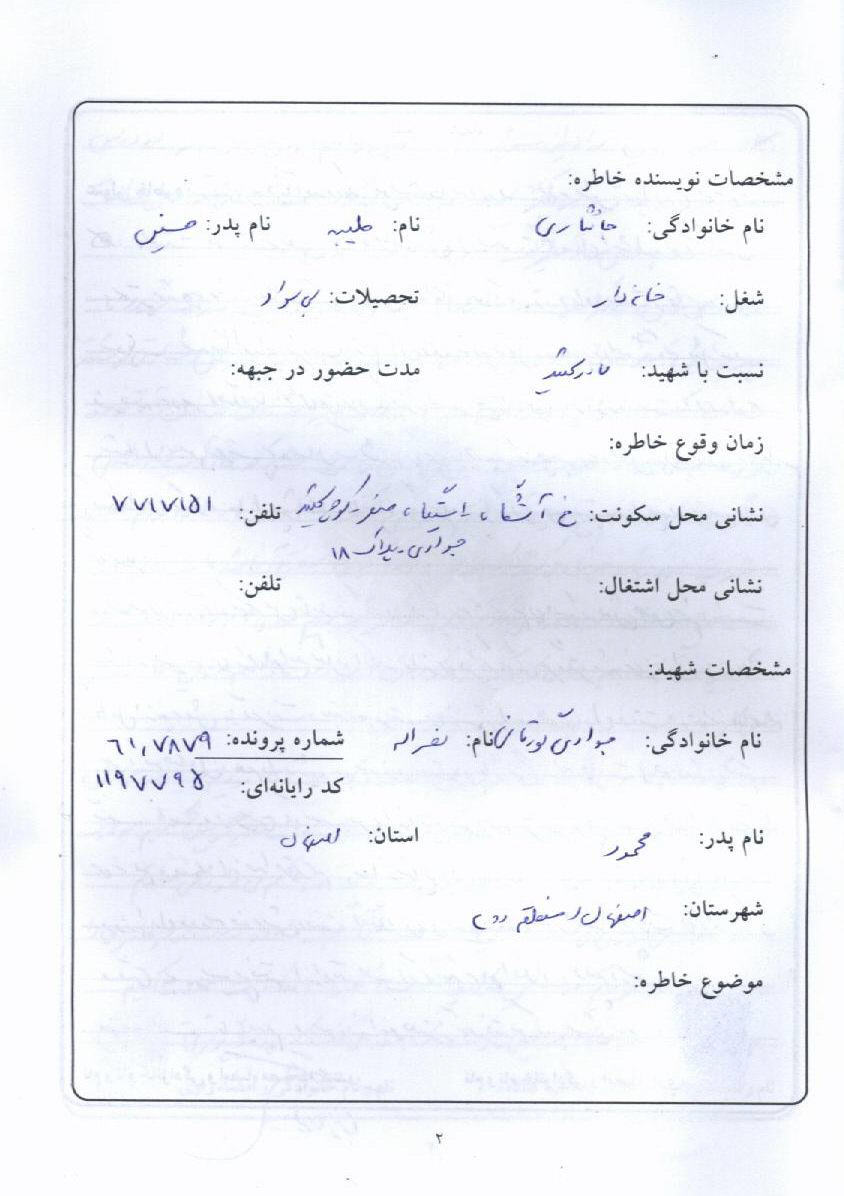 مشخصات نویسنده خاطره:
نام خانوادگی: جانثاری نام: طیبه نام پدر: حسین
شغل: خانه دار تحصیلات: بی سواد
نسبت با شهید: مادر شهید مدت حضور در جبهه:
زمان وقوع خاطره:
نشانی محل سکونت: خ آتشگاه، تلفن: ۷۷۱۷۱۵۱
جوادی پلاک ۱۸
نشانی محل اشتغال: تلفن:
مشخصات شهید:
نام خانوادگی: جوادی نام: نصراله شماره پرونده: ۶۱٫۷۸۷۹
کد رایانه‌ای: ۱۱۹۷۷۹۵
نام پدر: محمود استان: اصفهان
شهرستان: اصفهان (منطقه دو)
موضوع خاطره:
۲